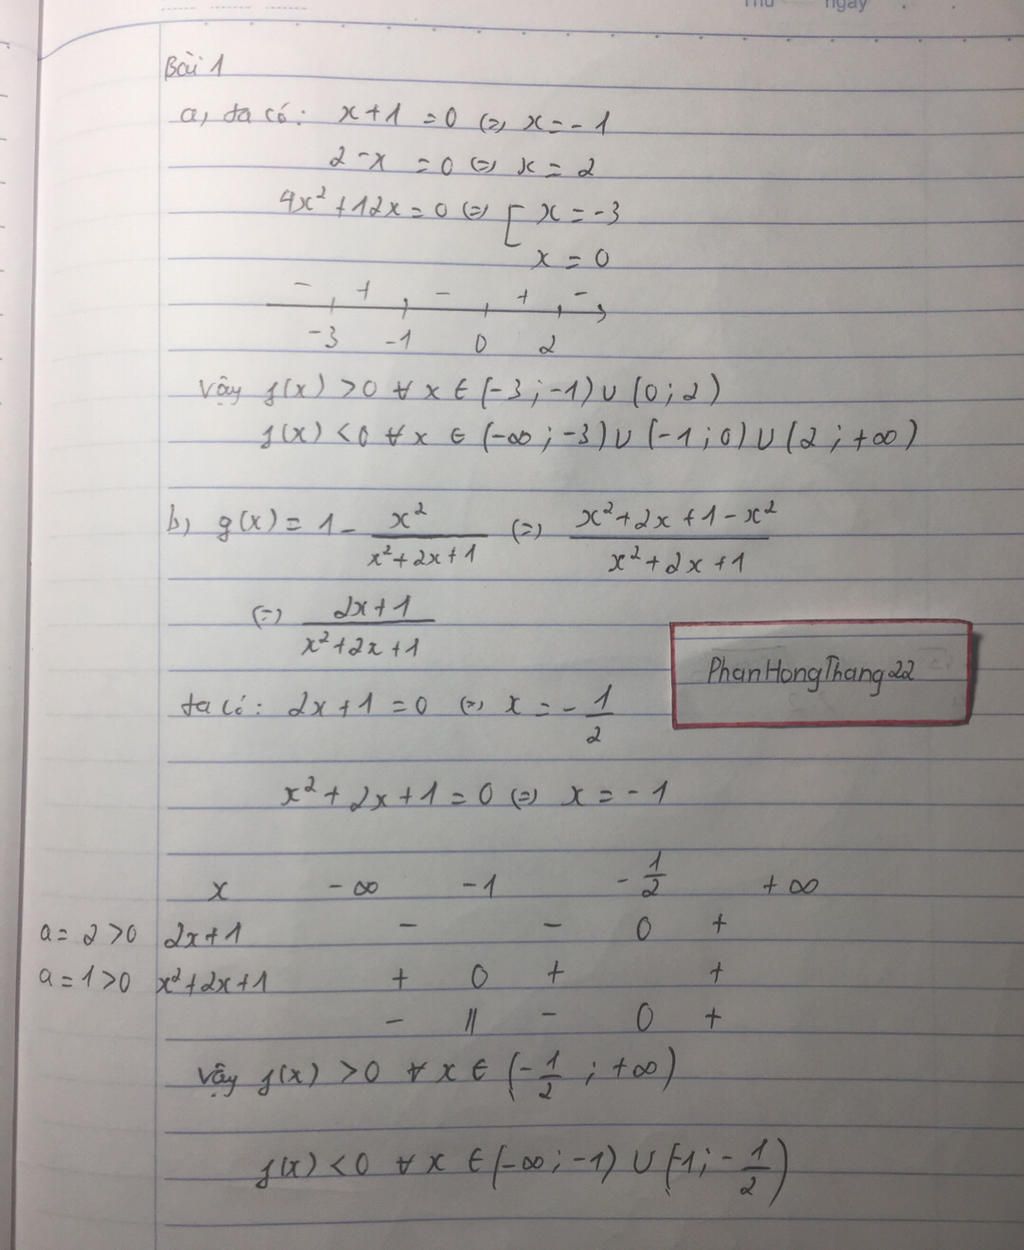 Thứ ngày
Bài 1
a, ta có: x+1 = 0 (=) x = -1
2-x = 0 (=) x = 2
4x²+12x = 0 (=) [ x = -3
x = 0
- + - + -
-3 -1 0 2
Vậy f(x) > 0 ∀ x ∈ (-3; -1) ∪ (0; 2)
f(x) < 0 ∀ x ∈ (-∞; -3) ∪ (-1; 0) ∪ (2; +∞)
b, g(x) = 1 - x²/(x²+2x+1) (=) (x²+2x+1-x²)/(x²+2x+1)
(=) (2x+1)/(x²+2x+1)
PhanHongThang22
ta có: 2x+1 = 0 (=) x = -1/2
x²+2x+1 = 0 (=) x = -1
x -∞ -1 -1/2 +∞
a = 2 > 0 2x+1 - - 0 +
a = 1 > 0 x²+2x+1 + 0 + +
- || - 0 +
Vậy f(x) > 0 ∀ x ∈ (-1/2; +∞)
f(x) < 0 ∀ x ∈ (-∞; -1) ∪ (-1; -1/2)